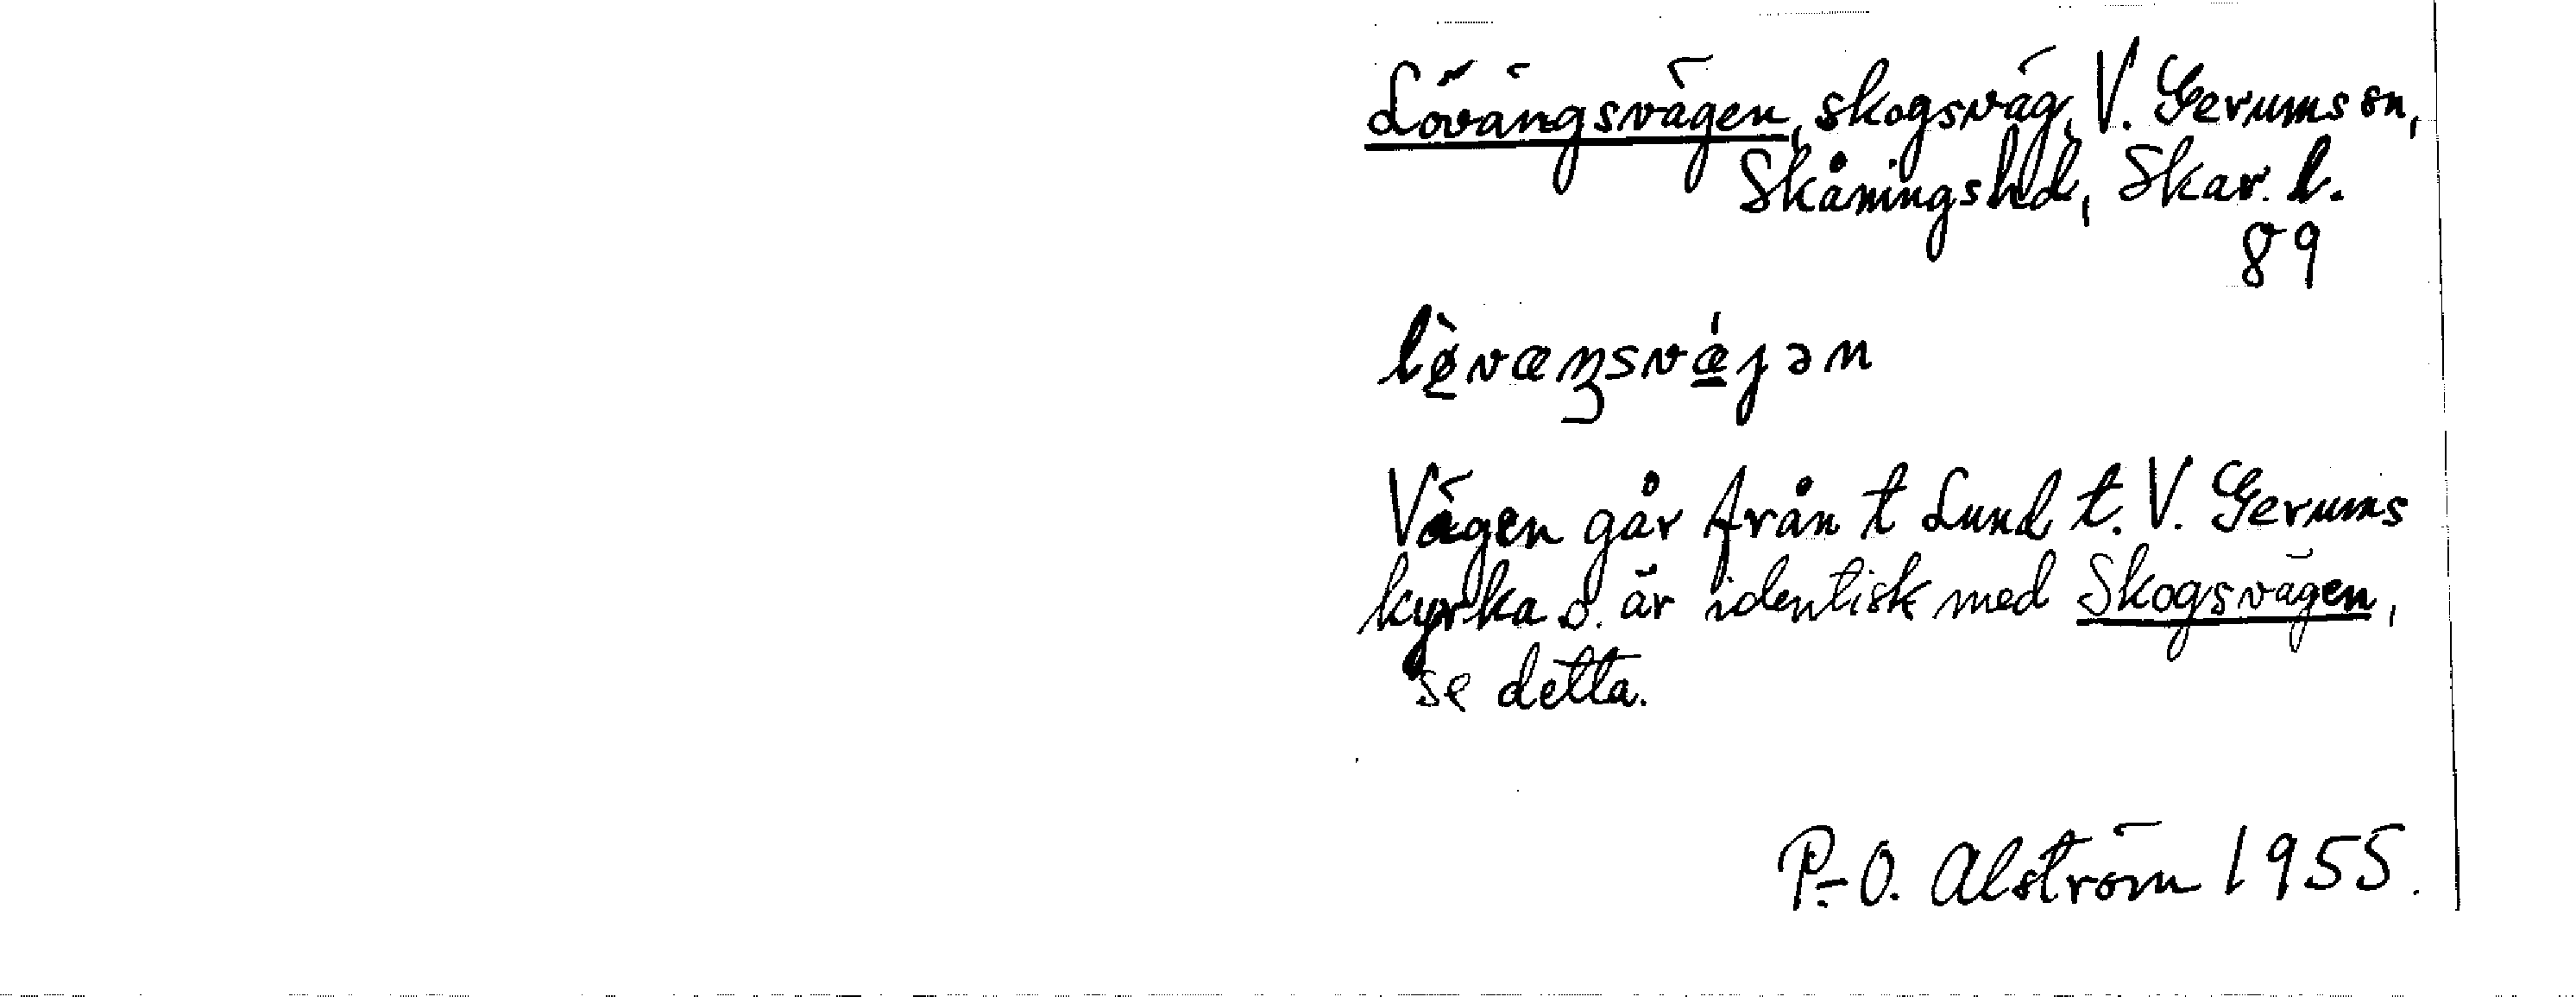 Lövängsvägen, skogsväg, V. Gerums sn,
Skånings hd, Skar. l.
89
lø̀væŋsvæ̀jən
Vägen går från t Lund t. V. Gerums
kyrka o. är identisk med Skogsvägen,
se detta.
P.-O. Alström 1955.